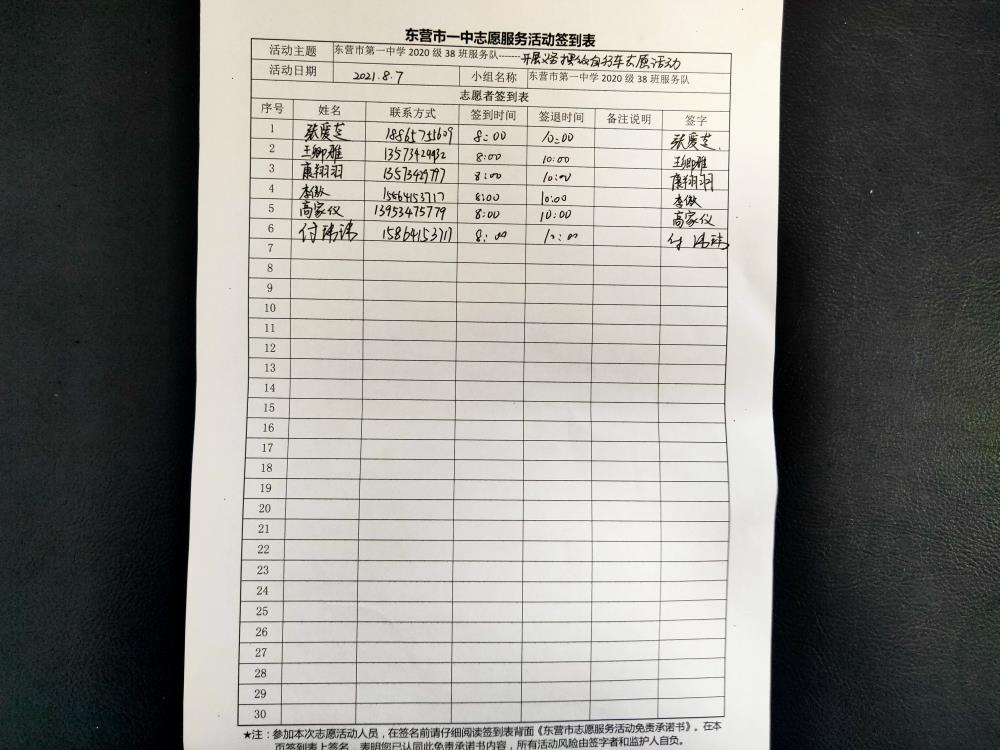 东营市一中志愿服务活动签到表
活动主题 东营市第一中学 2020 级 38 班服务队-------开展义务摆放自行车志愿活动
活动日期 2021.8.7 小组名称 东营市第一中学 2020 级 38 班服务队
志愿者签到表
序号 姓名 联系方式 签到时间 签退时间 备注说明 签字
1 张爱芝 18865755609 8:00 10:00 张爱芝.
2 王卿雅 13573429932 8:00 10:00 王卿雅
3 康翔羽 13573429797 8:00 10:00 康翔羽
4 李傲 15864153717 8:00 10:00 李傲
5 高家仪 13953475779 8:00 10:00 高家仪
6 付琦 15864153717 8:00 10:00 付
7
8
9
10
11
12
13
14
15
16
17
18
19
20
21
22
23
24
25
26
27
28
29
30
★注：参加本次志愿活动人员，在签名前请仔细阅读签到表背面《东营市志愿服务活动免责承诺书》。在本
页签到表上签名，表明您已认同此免责承诺书内容，所有活动风险由签字者和监护人自负。